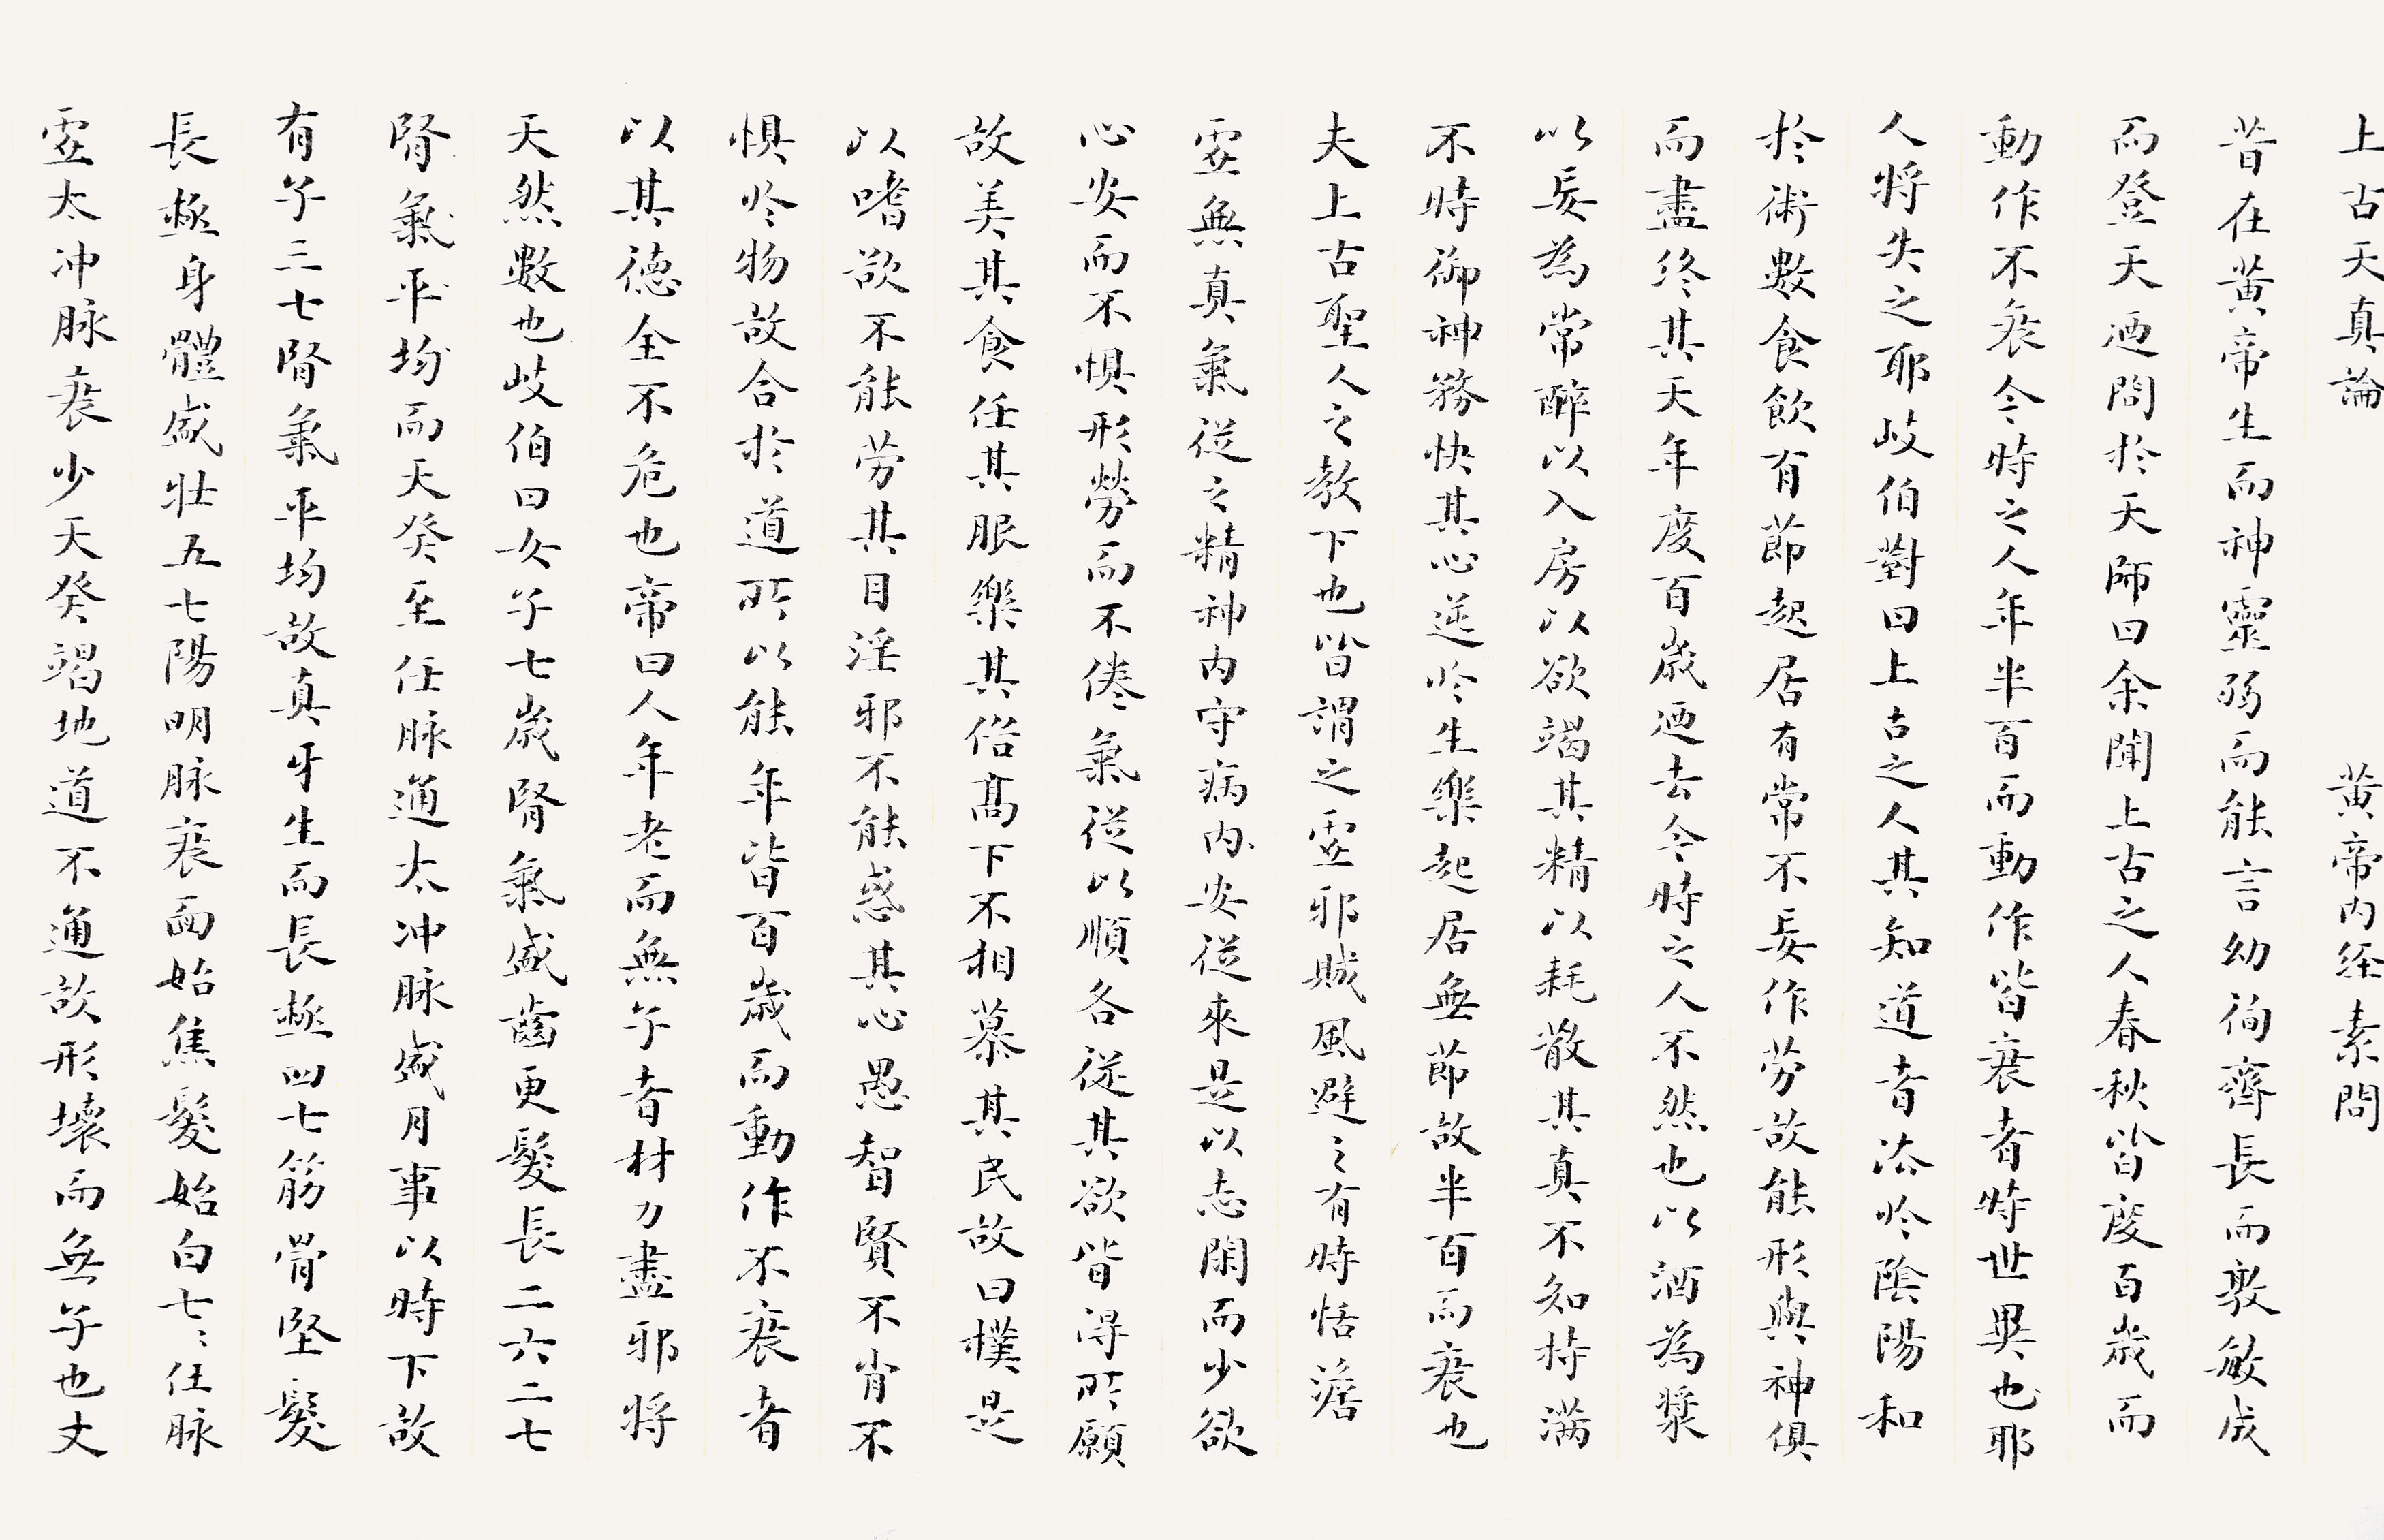 上古天真論 黃帝內經素問
昔在黃帝生而神靈弱而能言幼徇齊長而敦敏成
而登天迺問於天師曰余聞上古之人春秋皆度百歲而
動作不衰今時之人年半百而動作皆衰者時世異也耶
人將失之耶岐伯對曰上古之人其知道者法於陰陽和
於術數食飲有節起居有常不妄作劳故能形與神俱
而盡終其天年度百歲迺去今時之人不然也以酒為漿
以妄為常醉以入房以欲竭其精以耗散其真不知持滿
不時御神務快其心逆於生樂起居無節故半百而衰也
夫上古聖人之教下也皆謂之虛邪賊風避之有時恬澹
虛無真氣從之精神內守病內安從來是以志閑而少欲
心安而不懼形勞而不倦氣從以順各從其欲皆得所願
故美其食任其服樂其俗高下不相慕其民故曰樸是
以嗜欲不能劳其目淫邪不能惑其心愚智賢不肖不
懼於物故合於道所以能年皆百歲而動作不衰者
以其德全不危也帝曰人年老而無子者材力盡邪將
天然數也岐伯曰女子七歲腎氣盛齒更髮長二六二七
腎氣平均而天癸至任脉通太冲脉盛月事以時下故
有子三七腎氣平均故真牙生而長極四七筋骨堅髮
長極身體盛壯五七陽明脉衰面始焦髮始白七〻任脉
虛太冲脉衰少天癸竭地道不通故形壞而無子也丈